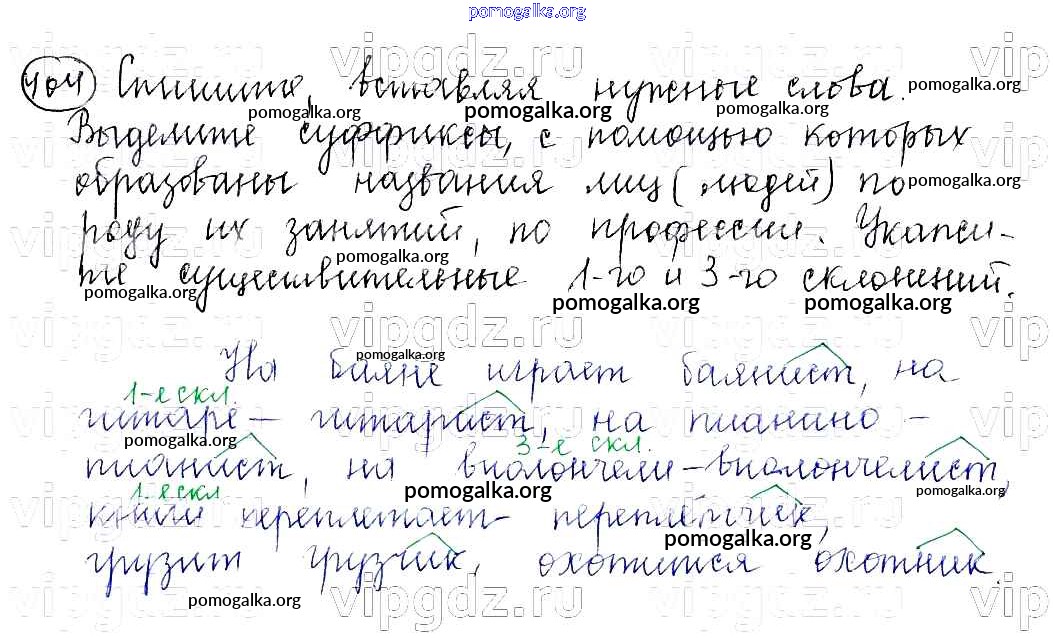 pomogalka.org
404 Спишите, вставляя нужные слова.
Выделите суффиксы, с помощью которых
образованы названия лиц (людей) по
роду их занятий, по профессии. Укажи-
те существительные 1-го и 3-го склонений.
На баяне играет баянист, на
1-е скл.
гитаре — гитарист, на пианино —
3-е скл.
пианист, на виолончели — виолончелист,
1-е скл
книги переплетает — переплётчик,
грузит грузчик, охотится охотник.
pomogalka.org
vipgdz.ru